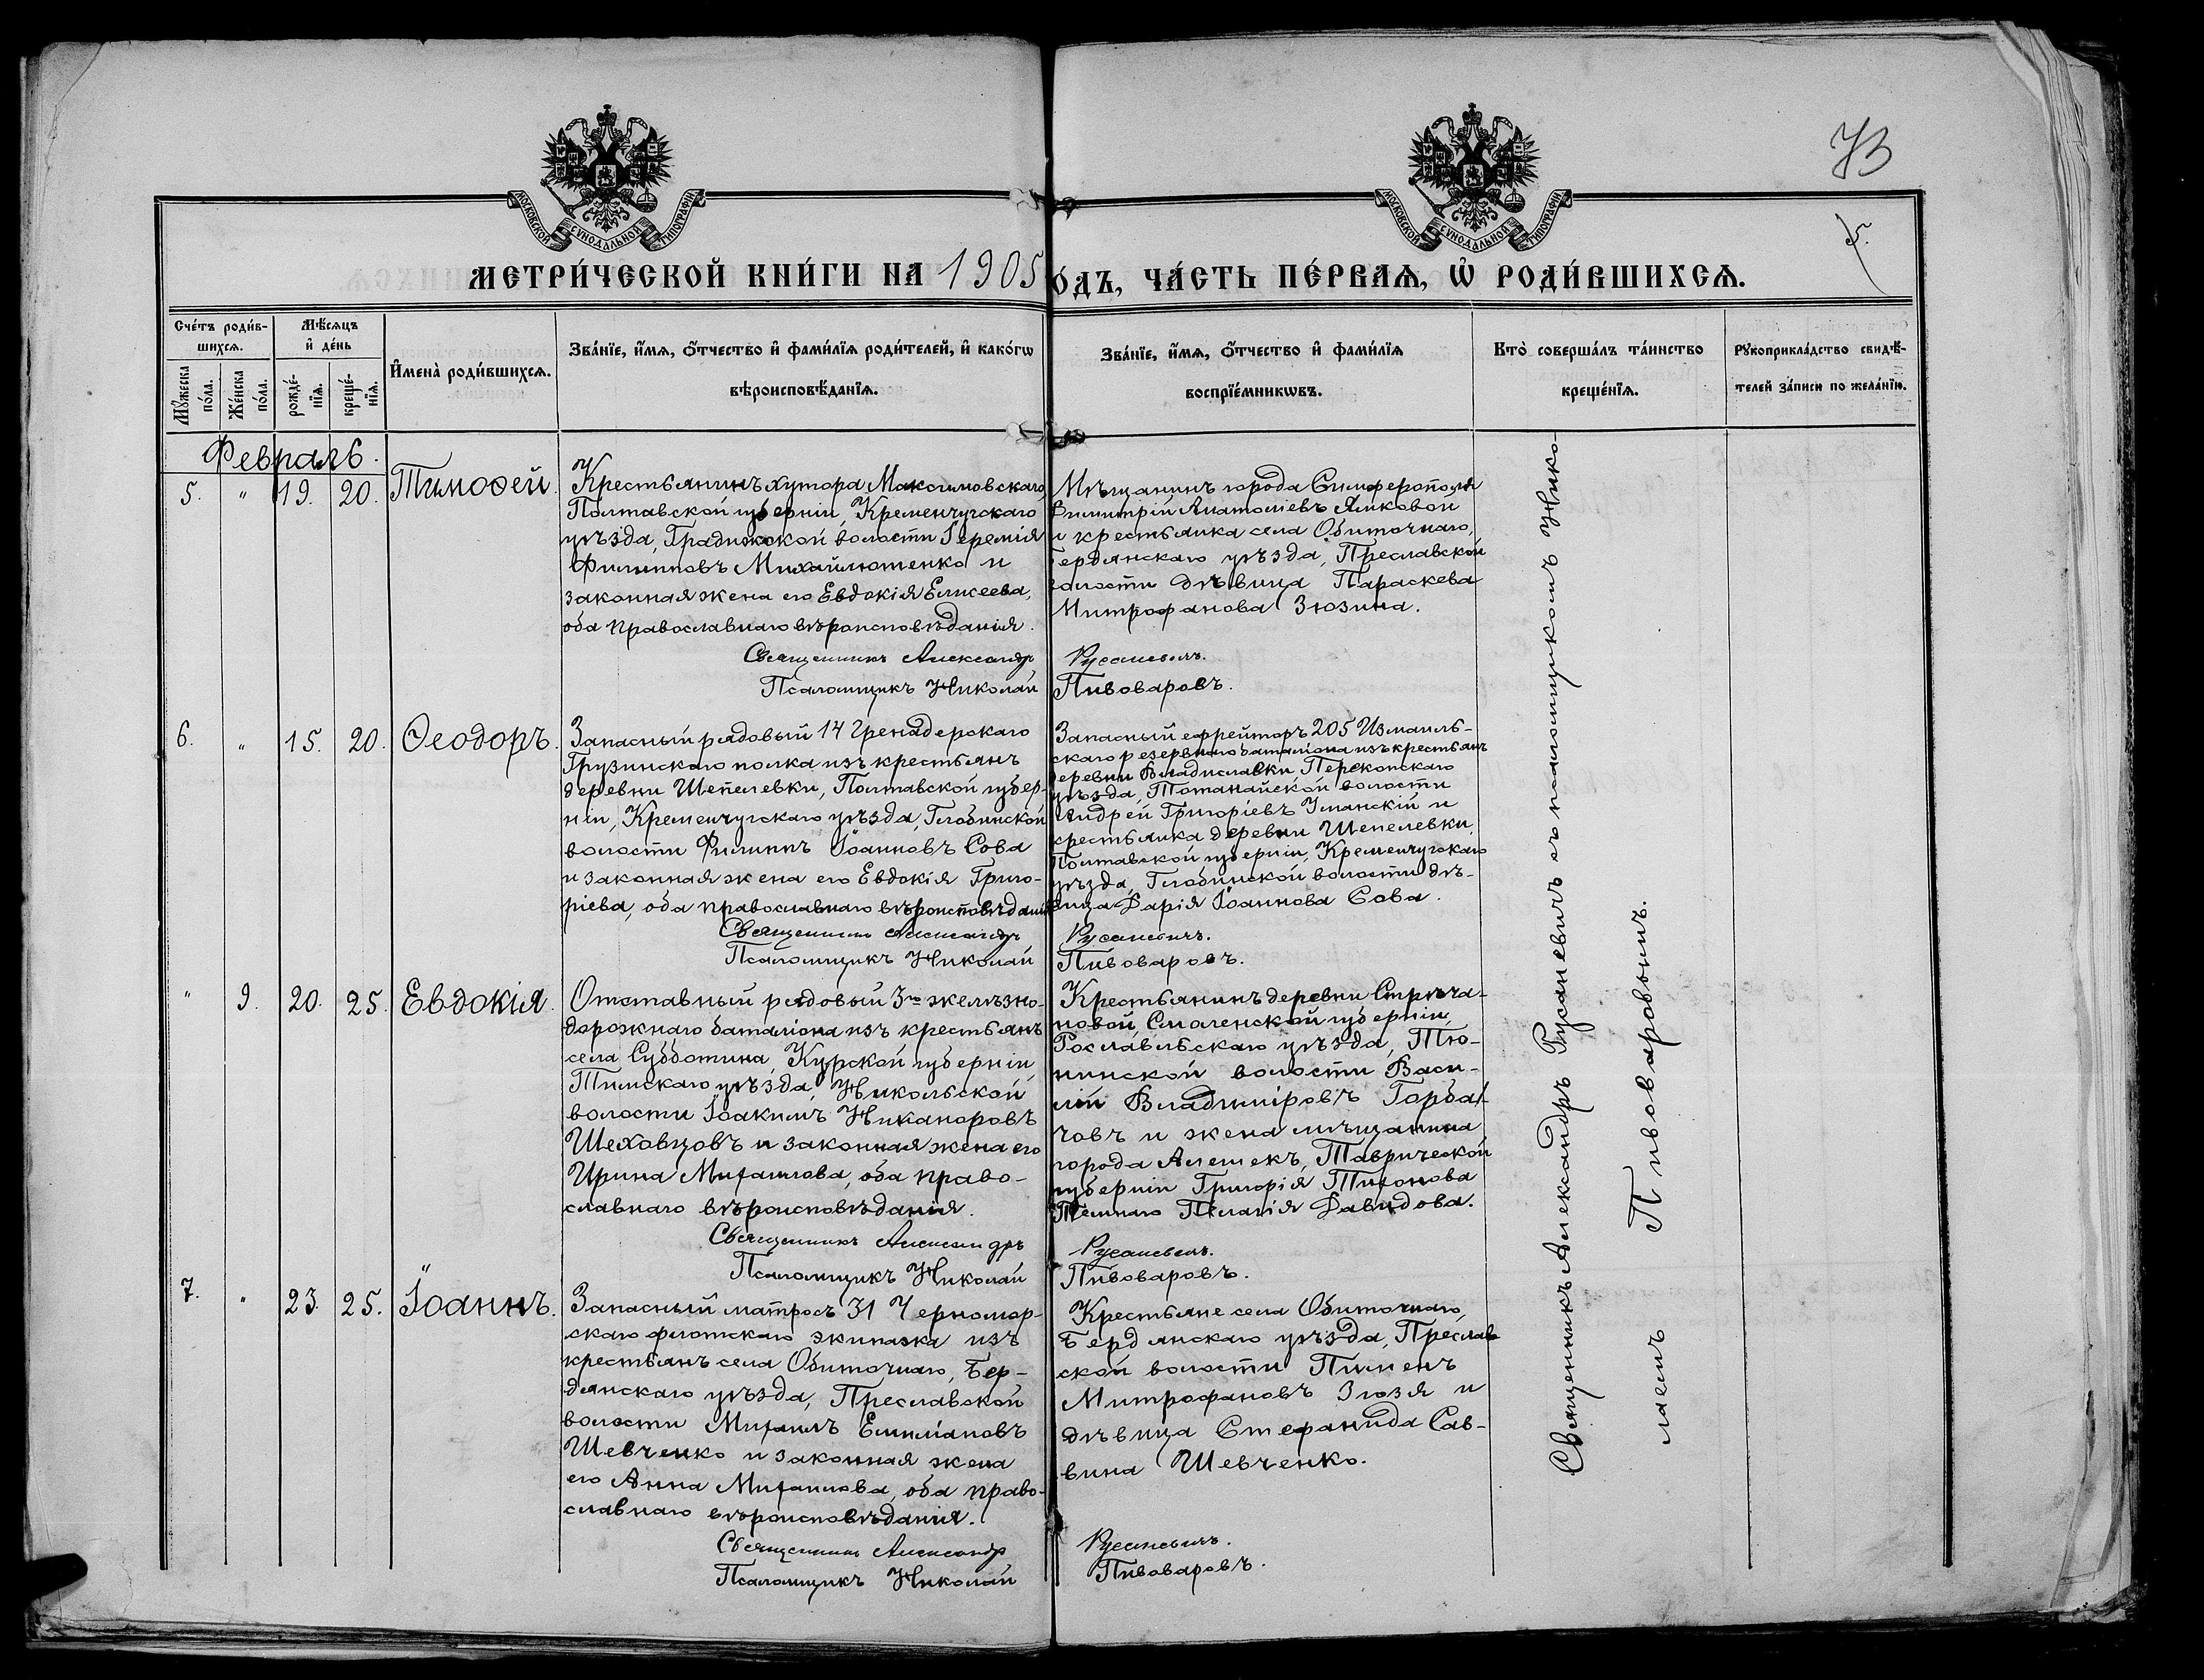 73
5.
МОСКОВСКОЙ СѴНОДАЛЬНОЙ ТИПОГРАФІИ.
МОСКОВСКОЙ СѴНОДАЛЬНОЙ ТИПОГРАФІИ.
МЕТРИ́ЧЕСКОЙ КНИ́ГИ НА 1905 О́ДЪ, ЧА́СТЬ ПЕ́РВАѦ, Ѡ҆ РОДИ́ВШИХСѦ.
Сче́тъ роди́в-
шихсѧ.
Мꙋ́жеска по́ла.
Же́нска по́ла.
Мѣ́сѧцъ
и҆ де́нь
рожде́-
нїѧ.
креще́-
нїѧ.
И҆мена̀ роди́вшихсѧ.
Зва́нїе, и҆́мѧ, ѻ҆́тчество и҆ фами́лїѧ роди́телей, и҆ како́гѡ
вѣроисповѣ́данїѧ.
Зва́нїе, и҆́мѧ, ѻ҆́тчество и҆ фами́лїѧ
воспрїе́мникѡвъ.
Кто̀ соверша́лъ та́инство
креще́нїѧ.
Рꙋкоприкла́дство свидѣ́-
телей за́писи по жела́нїю.
Февраль.
5. " 19. 20. Тимоѳей.
Крестьянинъ хутора Максимовскаго,
Полтавской губерніи, Кременчугскаго
уѣзда, Градижской волости Іеремія
Филипповъ Михайлютенко и
законная жена его Евдокія Елисеева,
оба православнаго вѣроисповѣданія.
Мѣщанинъ города Симферополя
Димитрій Анатоліевъ Яиковой
и крестьянка села Обиточнаго,
Бердянскаго уѣзда, Преславской
волости дѣвица Параскева
Митрофанова Зюзина.
Священникъ Александръ Русаневичъ.
Псаломщикъ Николай Пивоваровъ.
6. " 15. 20. Ѳеодоръ.
Запасный рядовый 14 Гренадерскаго
Грузинскаго полка изъ крестьянъ
деревни Шепелевки, Полтавской губер-
ніи, Кременчугскаго уѣзда, Глобинской
волости Филиппъ Іоанновъ Сова
и законная жена его Евдокія Григо-
ріева, оба православнаго вѣроисповѣданія
Запасный ефрейторъ 205 Измаиль-
скаго резервнаго баталіона изъ крестьянъ
деревни Владиславки, Перекопскаго
уѣзда, Тотанайской волости
Андрей Григоріевъ Уманскій и
крестьянка деревни Шепелевки,
Полтавской губерніи, Кременчугскаго
уѣзда, Глобинской волости дѣ-
вица Дарія Іоаннова Сова.
Священникъ Александръ Русаневичъ.
Псаломщикъ Николай Пивоваровъ.
" 9. 20. 25. Евдокія.
Отставный рядовый 3го желѣзно-
дорожнаго баталіона изъ крестьянъ
села Субботина, Курской губерніи
Тимскаго уѣзда, Никольской
волости Іоакимъ Никаноровъ
Шеховцовъ и законная жена его
Ирина Михаилова, оба право-
славнаго вѣроисповѣданія.
Крестьянинъ деревни Стрѣча-
новой, Смоленской губерніи,
Рославльскаго уѣзда, Тю-
нинской волости Васи-
лій Владиміровъ Горба-
човъ и жена мѣщанина
города Алешекъ, Таврической
губерніи Григорія Тихонова
Темнаго Пелагія Давидова.
Священникъ Александръ Русаневичъ.
Псаломщикъ Николай Пивоваровъ.
7. " 23. 25. Іоаннъ.
Запасный матросъ 31 Черномор-
скаго флотскаго экипажа изъ
крестьянъ села Обиточнаго, Бер-
дянскаго уѣзда, Преславской
волости Михаилъ Емиліановъ
Шевченко и законная жена
его Анна Михаилова, оба право-
славнаго вѣроисповѣданія.
Крестьяне села Обиточнаго,
Бердянскаго уѣзда, Преслав
ской волости Пименъ
Митрофановъ Зюзя и
дѣвица Стефанида Сав-
вина Шевченко.
Священникъ Александръ Русаневичъ.
Псаломщикъ Николай Пивоваровъ.
Священникъ Александръ Русаневичъ съ псаломщикомъ Нико-
лаемъ Пивоваровымъ.